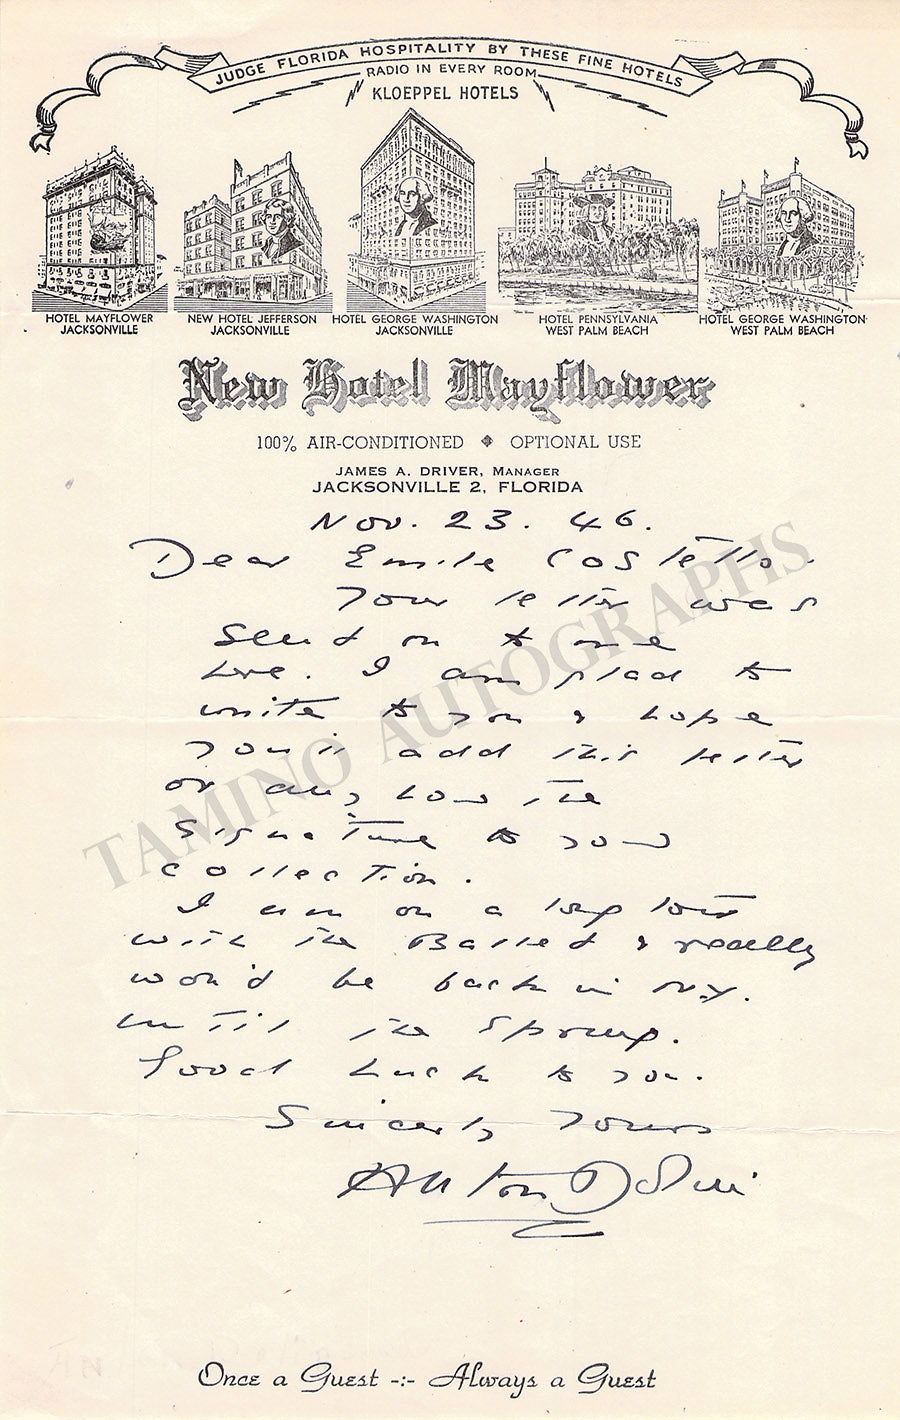 JUDGE FLORIDA HOSPITALITY BY THESE FINE HOTELS
RADIO IN EVERY ROOM
KLOEPPEL HOTELS
HOTEL MAYFLOWER
JACKSONVILLE
NEW HOTEL JEFFERSON
JACKSONVILLE
HOTEL GEORGE WASHINGTON
JACKSONVILLE
HOTEL PENNSYLVANIA
WEST PALM BEACH
HOTEL GEORGE WASHINGTON
WEST PALM BEACH
New Hotel Mayflower
100% AIR-CONDITIONED ◆ OPTIONAL USE
JAMES A. DRIVER, MANAGER
JACKSONVILLE 2, FLORIDA
Nov. 23. 46.
Dear Emile Costello.
Your letter was
send on to me
here. I am glad to
write to you & hope
you'll add this letter
or any how the
signature to your
collection.
I am on a long tour
with the Ballet & really
won'd be back in N.Y.
until the Spring.
Good Luck to you.
Sincerly Yours
Anton Dolin
Once a Guest -:- Always a Guest
TAMINO AUTOGRAPHS